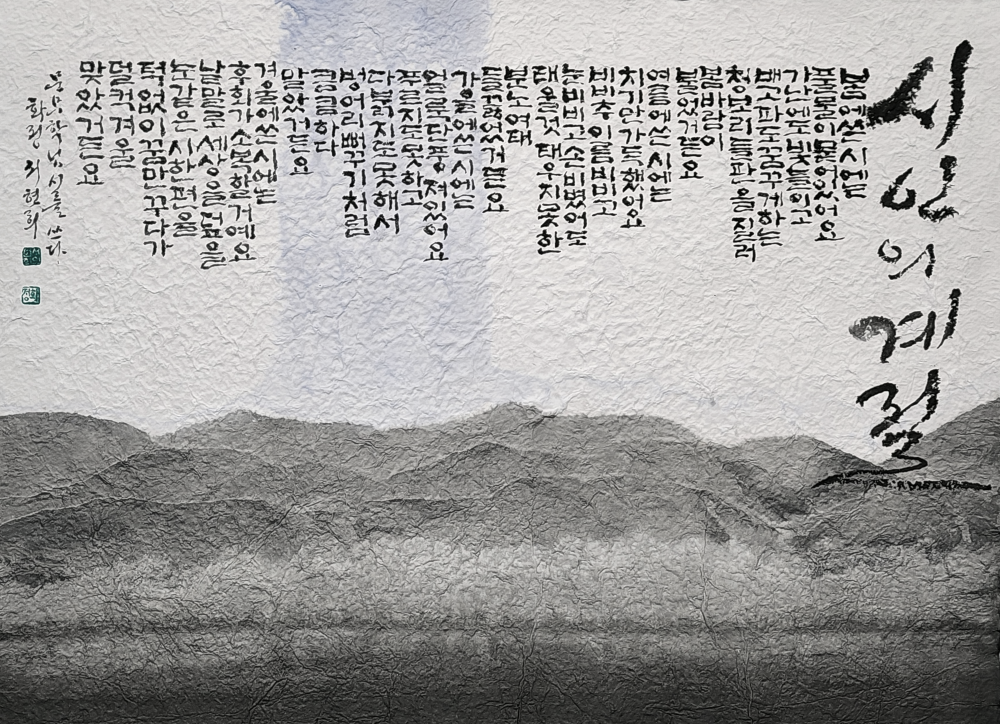 시인의 계절
봄에 쓴 시에는
풀물이 묻어있어요
가난에도 빛들이고
배고파도 꿈꾸게하는
청보리 들판을 질러
봄바람이
불었거든요
여름에 쓴 시에는
치기만 가득했어요
비비추 이름 비비고
눈 비비고 손 비볐어도
태울것 태우지 못한
분노 여태
들끓었거든요
가을에 쓴 시에는
얼룩단풍 져있어요
푸르지도 못하고
다 붉지도 못해서
벙어리 뻐꾸기처럼
큼큼하다
말았거든요
겨울에 쓴 시에는
후회가 소복할거예요
날말로 세상을 덮을
눈같은 시 한편을
턱없이 꿈만 꾸다가
덜컥 겨울
맞았거든요
시를 쓰다
현희